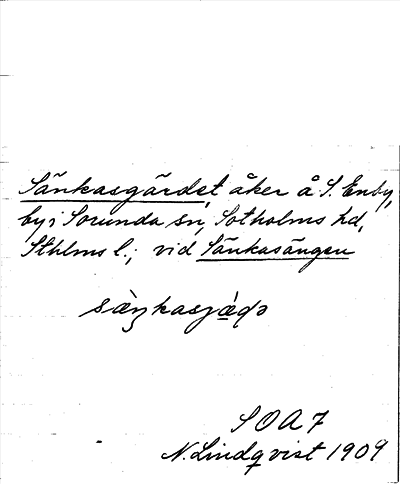 Sänkasgärdet åker å S. Enby,
by i Sorunda sn, Sotholms hd,
Sthlms l.; vid Sänkasängen
S O A 7
N. Lindqvist 1909